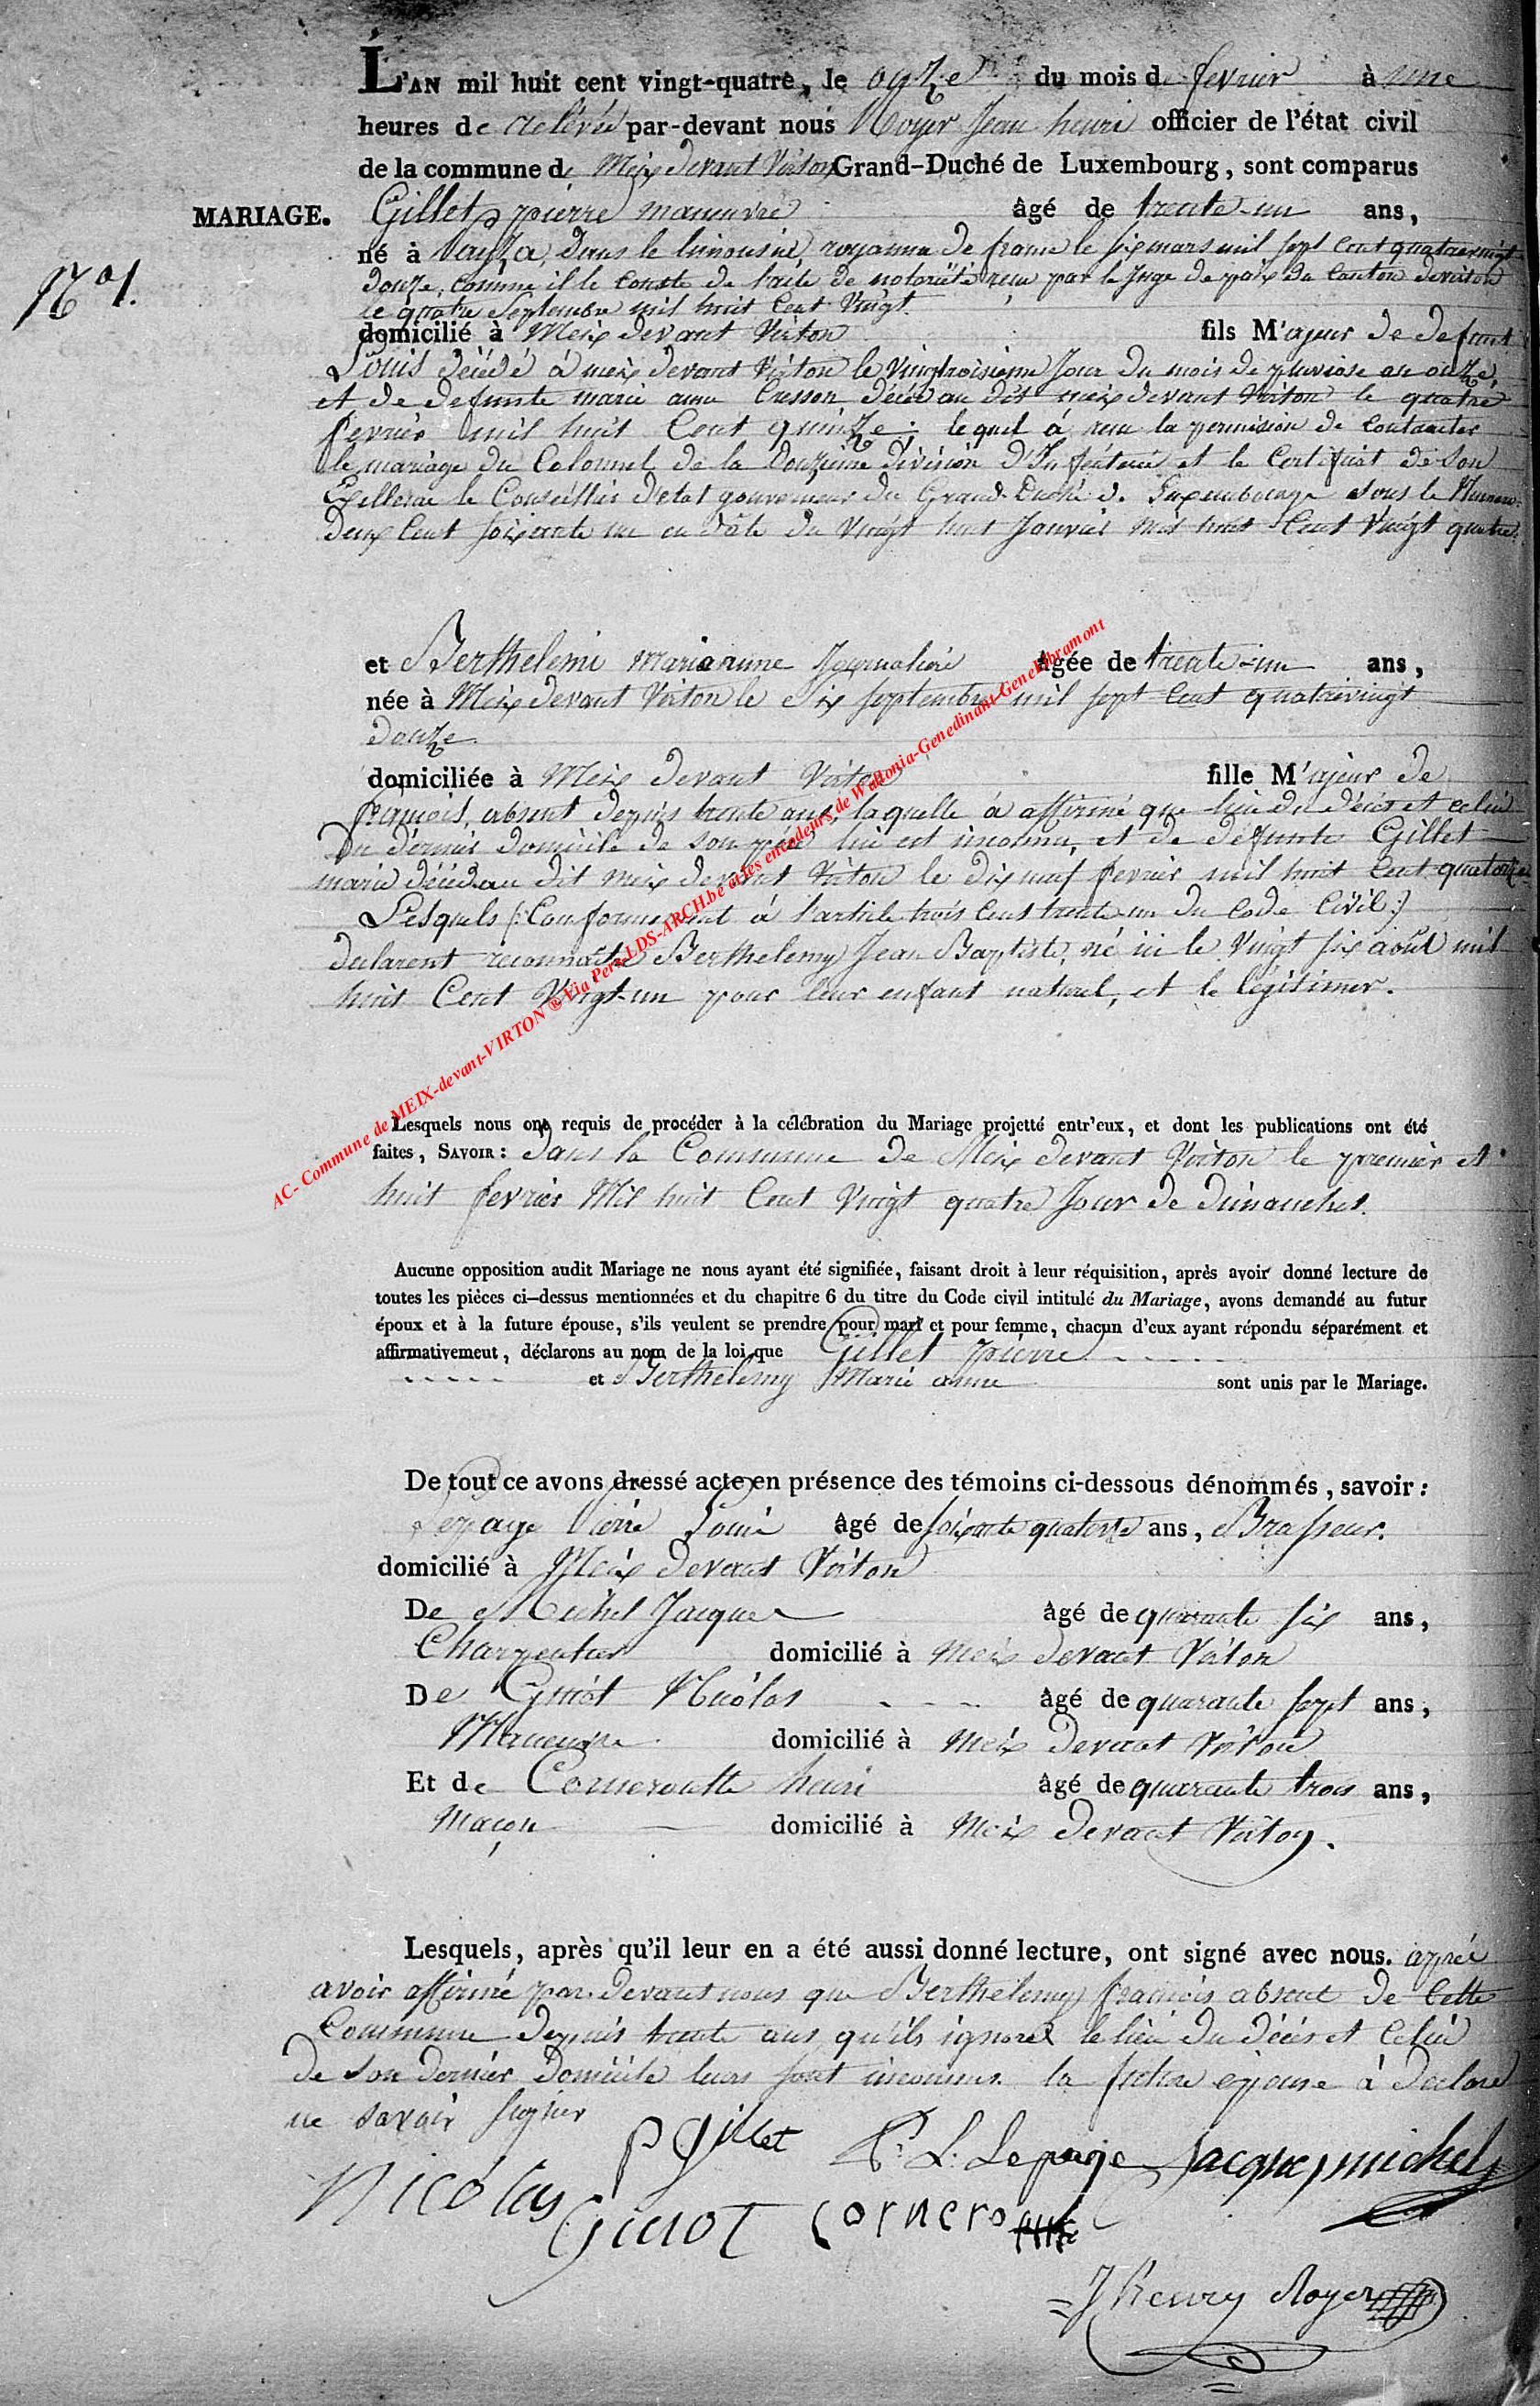 L'AN mil huit cent vingt-quatre, le onze du mois de fevrier à une
heures de relévée par-devant nous Royer Jean henri officier de l'état civil
de la commune de Meix devant Virton Grand-Duché de Luxembourg, sont comparus
MARIAGE.
N° 1.
Gillet pierre manœuvre âgé de trente-un ans,
né à dans le limousin, royaume de france le six mars mil sept cent quatrevingt
douze, comme il le conste de l'acte de notoriété reçu par le Juge de paix du Canton devirton
le quatre Septembre mil huit Cent Vingt.
domicilié à Meix devant Virton fils M'ajeur de defunt
Louis décédé à meix devant Virton le Vingtroisieme Jour du mois de pluviose an onze,
et de defunte marie anne Cresson décédé au dit meix devant Virton le quatre
fevrier mil huit Cent quinze; lequel à reçu la permission de Contracter
le mariage du Colonnel de la Douzieme Division D'Infenterie et le Certificat de Son
Exellence le Conseiller d'état gouverneur du Grand-Duché de Luxembourg sous le Numero
Deux Cent soixante un en date du Vingt huit Janvier mil huit Cent Vingt quatre.
et Berthelemi marianne Journaliére âgée de trente-un ans,
née à Meix devant Virton le Six septembre mil sept Cent quatrevingt
douze.
domiciliée à Meix devant Virton fille M'ajeur de
françois, absent depuis trente ans, laquelle à affirmé que lieu du décès et celui
Du dernier domicile de son père lui est inconnu, et de defunte Gillet
marie décédé au dit meix devant Virton le dix neuf fevrier mil huit Cent quatorze
Lesquels (: Conformement à l'article trois Cens trente-un du Code Civil :)
declarent reconnaître Berthelemy Jean Baptiste, né ici le Vingt six août mil
huit Cent Vingt-un pour leur enfant naturel, et le légitimer.
AC- Commune de MEIX-devant-VIRTON ® Via Pers-LDS-ARCH.be et les encodeurs de Wallonia-Genedinant-GeneLibramont
Lesquels nous ont requis de procéder à la célébration du Mariage projetté entr'eux, et dont les publications ont été
faites, SAVOIR : dans la Commune de Meix devant Virton le premier et
huit fevrier Mil huit Cent Vingt quatre Jour de dimanches.
Aucune opposition audit Mariage ne nous ayant été signifiée, faisant droit à leur réquisition, après avoir donné lecture de
toutes les pièces ci-dessus mentionnées et du chapitre 6 du titre du Code civil intitulé du Mariage, avons demandé au futur
époux et à la future épouse, s'ils veulent se prendre pour mari et pour femme, chacun d'eux ayant répondu séparément et
affirmativement, déclarons au nom de la loi que Gillet pierre
et Berthelemy Marie anne sont unis par le Mariage.
De tout ce avons dressé acte en présence des témoins ci-dessous dénommés, savoir :
Lepage Pierre Louis âgé de soixante quatorze ans, Brasseur.
domicilié à Meix devant Virton
De Michel Jacque âgé de quarante six ans,
Charpentier domicilié à Meix devant Virton
De Guiot Nicolas âgé de quarante sept ans,
Manœuvre domicilié à Meix devant Virton
Et de Cornerotte henri âgé de quarante trois ans,
Maçon domicilié à Meix devant Virton.
Lesquels, après qu'il leur en a été aussi donné lecture, ont signé avec nous. après
avoir affirmé par devant nous que Berthelemy françois absent de Cette
Commune depuis trente ans, qu'ils ignorel le lieu du décès et Celui
de Son dernier Domicile leurs sont inconnus. la future epouse à déclaré
ne savoir signer
P Gillet P. L. Lepage Jacque michel
Nicolas Guiot cornerotte
J henry Royer